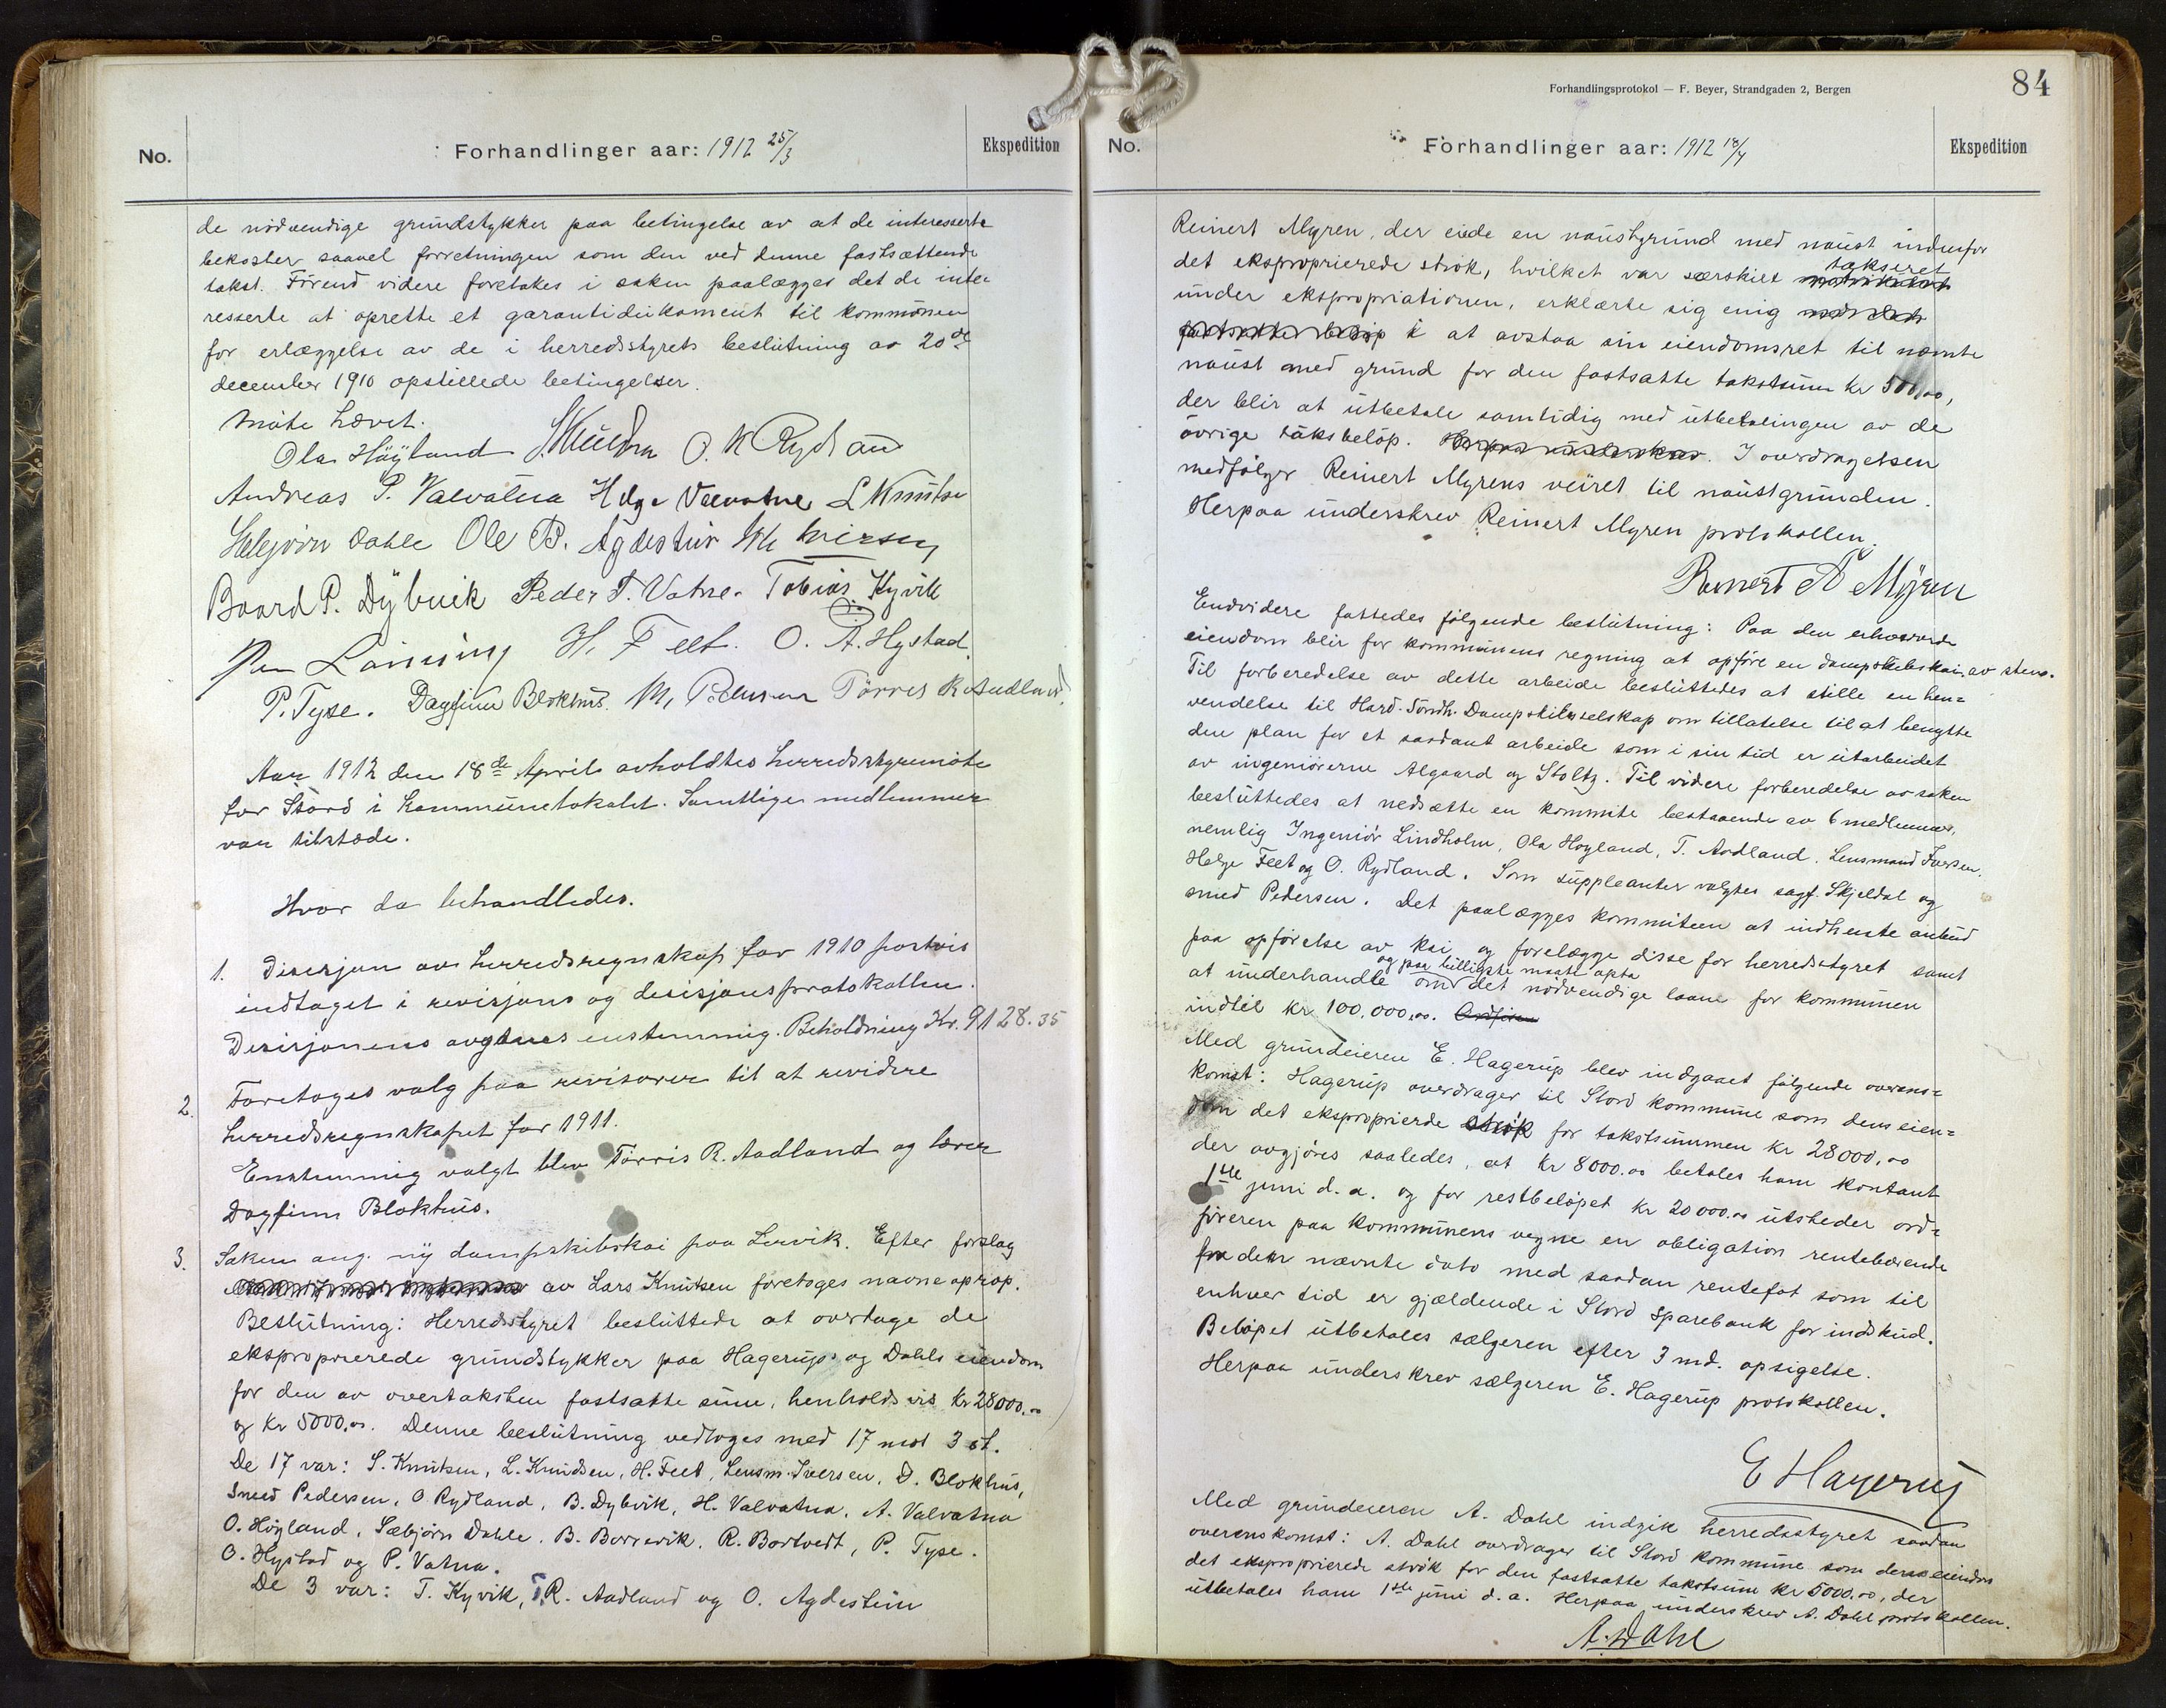 No.
Forhandlinger aar: 1912 25/3
Ekspedition
de nödvendige grundstykker paa betingelse av at de interesserte
bekoster saavel forretningen som den ved denne fastsættende
takst. Förend videre foretakes i saken paalægges det de inte-
resserte at oprette et garantidokument til kommunen
for erlæggelse av de i herredsstyrets beslutning av 20de
december 1910 opstillede betingelser.
Möte hævet.
Ola Höyland O. K Rydland
Andreas P. Valvatna Helge Valvatne L Knutsen
Sæbjörn Dahle Ole B. Agdestein
Baard P. Dybvik Peder T. Vatne. Tobias Kyvik
H. Feet. O. A. Hystad
P. Tyse. Dagfinn Blokhus. M. Pedersen Törres R. Aadland
Aar 1912 den 18de April avholdtes herredsstyremöte
for Stord i kommunelokalet. Samtlige medlemmer
var tilstæde.
Hvor da behandledes.
1. Desisjon av herredsregnskap for 1910 partvis
indtaget i revisjons og desisjonsprotokollen.
Desisjonens avgtues enstemmig. Beholdning Kr. 9128.35
2. Foretoges valg paa revisorer til at revidere
herredsregnskapet for 1911.
Enstemmig valgt blev Törris R. Aadland og lærer
Dagfinn Blokhus.
3. Saken ang. ny dampskibskai paa Lervik. Efter forslag
av Lars Knutsen foretoges navneoprop.
Beslutning: Herredsstyret besluttede at overtage de
eksproprierede grundstykker paa Hagerups og Dahls eiendom
for den av overtaksten fastsatte sum, henholdsvis kr 28000.00
og kr 5000.00. Denne beslutning vedtoges med 17 mot 3 st.
De 17 var: S. Knutsen, L. Knudsen, H. Feet, Lensm. Iversen, D. Blokhus,
Smed Pedersen, O Rydland, B. Dybvik, H. Valvatna, A. Valvatna
O. Höyland, Sæbjörn Dahle, B. Borrevik, R. Bortvedt, P. Tyse.
O. Hystad og P. Vatna.
De 3 var: T. Kyvik, T.R. Aadland og O. Agdestein
Forhandlingsprotokol — F. Beyer, Strandgaden 2, Bergen
84
No.
Forhandlinger aar: 1912 18/4
Ekspedition
Reinert Myren, der eiede en naustgrund med naust indenfor
det eksproprierede strök, hvilket var særskilt takseret
under ekspropriationen, erklærte sig enig
i at avstaa sin eiendomsret til nævnte
naust med grund for den fastsatte takstsum kr 500.00,
der blir at utbetale samtidig med utbetalingen av de
övrige taksbelöp. I overdragelsen
medfölger Reinert Myrens veiret til naustgrunden.
Herpaa underskrev Reinert Myren protokollen.
Reinert A Myren
Endvidere fattedes fölgende beslutning: Paa den erhvervede
eiendom blir for kommunens regning at opföre en dampskibskai av sten.
Til forberedelse av dette arbeide besluttedes at stille en hen-
vendelse til Hard. Söndh. Dampskibsselskap om tillatelse til at benytte
den plan for et saadant arbeide som i sin tid er utarbeidet
av ingeniörerne Algaard og Stoltz. Til videre forberedelse av saken
besluttedes at nedsætte en kommite bestaaende av 6 medlemmer,
nemlig Ingeniör Lindholm, Ola Höyland, T. Aadland, Lensmand Iversen,
Helge Feet og O. Rydland. Som suppleanter valgtes sagf. Skjeldal og
smed Pedersen. Det paalægges kommiteen at indhente anbud
paa opförelse av kai og forelægge disse for herredsstyret samt
og paa billigste maate opta
at underhandle om det nödvendige laan for kommunen
indtil kr 100,000.00.
Med grundeieren E. Hagerup blev indgaaet fölgende overens-
komst: Hagerup overdrager til Stord kommune som dens eien-
dom det eksproprierde strök for takstsummen kr 28000,00
der avgjöres saaledes, at kr 8000.00 betales ham kontant
1ste juni d. a. og for restbelöpet kr 20000.00 utsteder ord-
föreren paa kommunens vegne en obligation rentebærende
fra den nævnte dato med saadan rentefot som til
enhver tid er gjældende i Stord Sparebank for indskud.
Belöpet utbetales sælgeren efter 3 md. opsigelse.
Herpaa underskrev sælgeren E. Hagerup protokollen.
E Hagerup
Med grundeieren A. Dahl indgik herredsstyret saadan
overenskomst: A. Dahl overdrager til Stord Kommune som dens eiendom
det eksproprierede strök for den fastsatte takstsum kr 5000.00, der
utbetales ham 1ste juni d. a. Herpaa underskrev A. Dahl protokollen.
A. Dahl